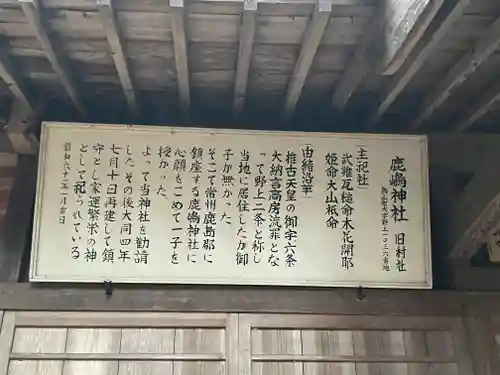 鹿嶋神社 旧村社
野上一〇三六番地
(主祀社)
武雅瓦槌命木花開耶
姫命大山祇命
(由緒沿革)
推古天皇の御宇六条
大納言高房流罪とな
って野上二条と称し
当地に居住したが御
子が無かった
そこで常州鹿島郡に
鎮座する鹿嶋神社に
心願をこめて一子を
授かった
よって当神社を勧請
したその後大同四年
七月十日再建して鎮
守とし家運繁栄の神
として祀られている
昭和六十二年一月吉日